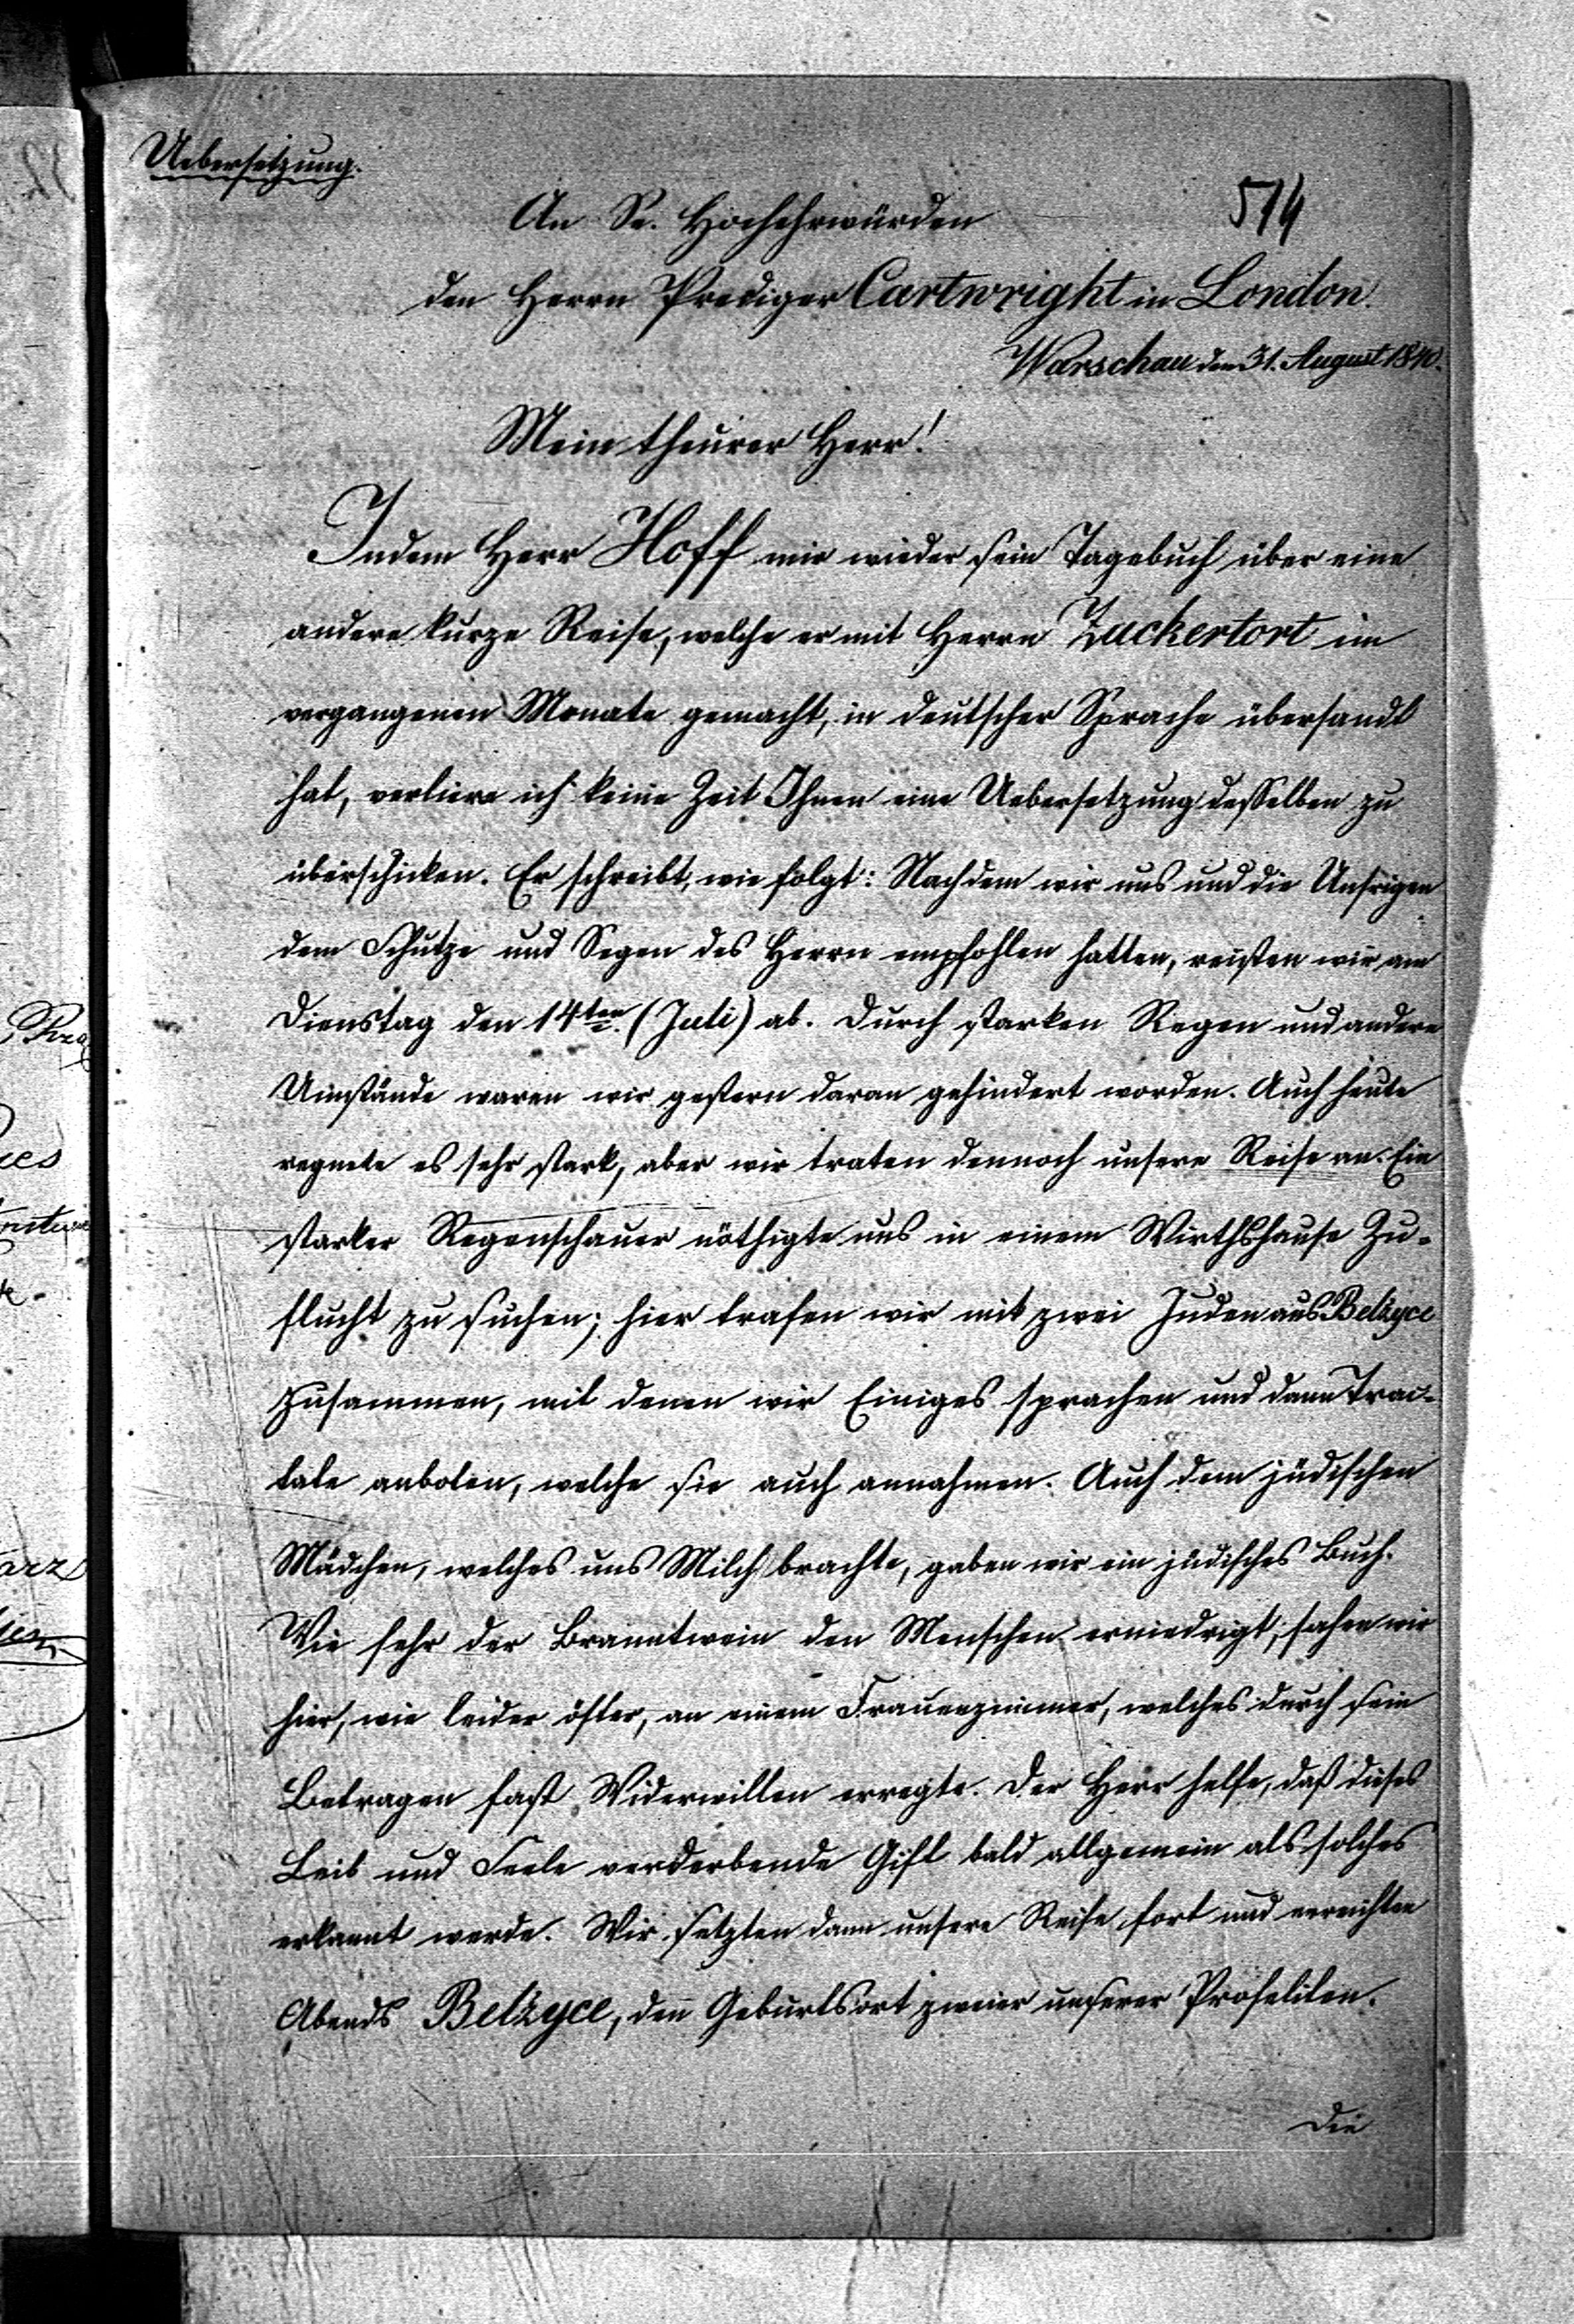 Uebersetzung.
574
An Sr. Hochehrwürden
den Herrn Prediger Cartwright in London.
Warschau den 31. August 1840.
Mein theurer Herr!
Indem Herr Hoff mir wieder sein Tagebuch über eine
andere kurze Reise, welche er mit Herrn Zuckertort im
vergangenen Monate gemacht, in deutscher Sprache übersandt
hat, verliere ich keine Zeit Ihnen eine Uebersetzung desselben zu
überschicken. Er schreibt, wie folgt: Nachdem wir uns und die Unsrigen
dem Schutze und Segen des Herrn empfohlen hatten, reisten wir am
Dienstag den 14ten (Juli) ab. Durch starken Regen und andere
Umstände waren wir gestern daran gehindert worden. Auch heute
regnete es sehr stark, aber wir traten dennoch unsere Reise an. Ein
starker Regenschauer nöthigte uns in einem Wirthshause Zu-
flucht zu suchen; hier trafen wir mit zwei Juden aus Belżyce
zusammen, mit denen wir Einiges sprachen und dann Trac-
tate anboten, welche sie auch annahmen. Auch dem jüdischen
Mädchen, welches uns Milch brachte, gaben wir ein jüdisches Buch.
Wie sehr der Branntwein den Menschen erniedrigt, sahen wir
hier, wie leider öfter, an einem Frauenzimmer, welches durch sein
Betragen fast Widerwillen erregte. Der Herr helfe, daß dieses
Leib und Seele verderbende Gift bald allgemein als solches
erkannt werde. Wir setzten dann unsere Reise fort und erreichten
Abends Belżyce, den Geburtsort zweier unserer Proseliten.
Die